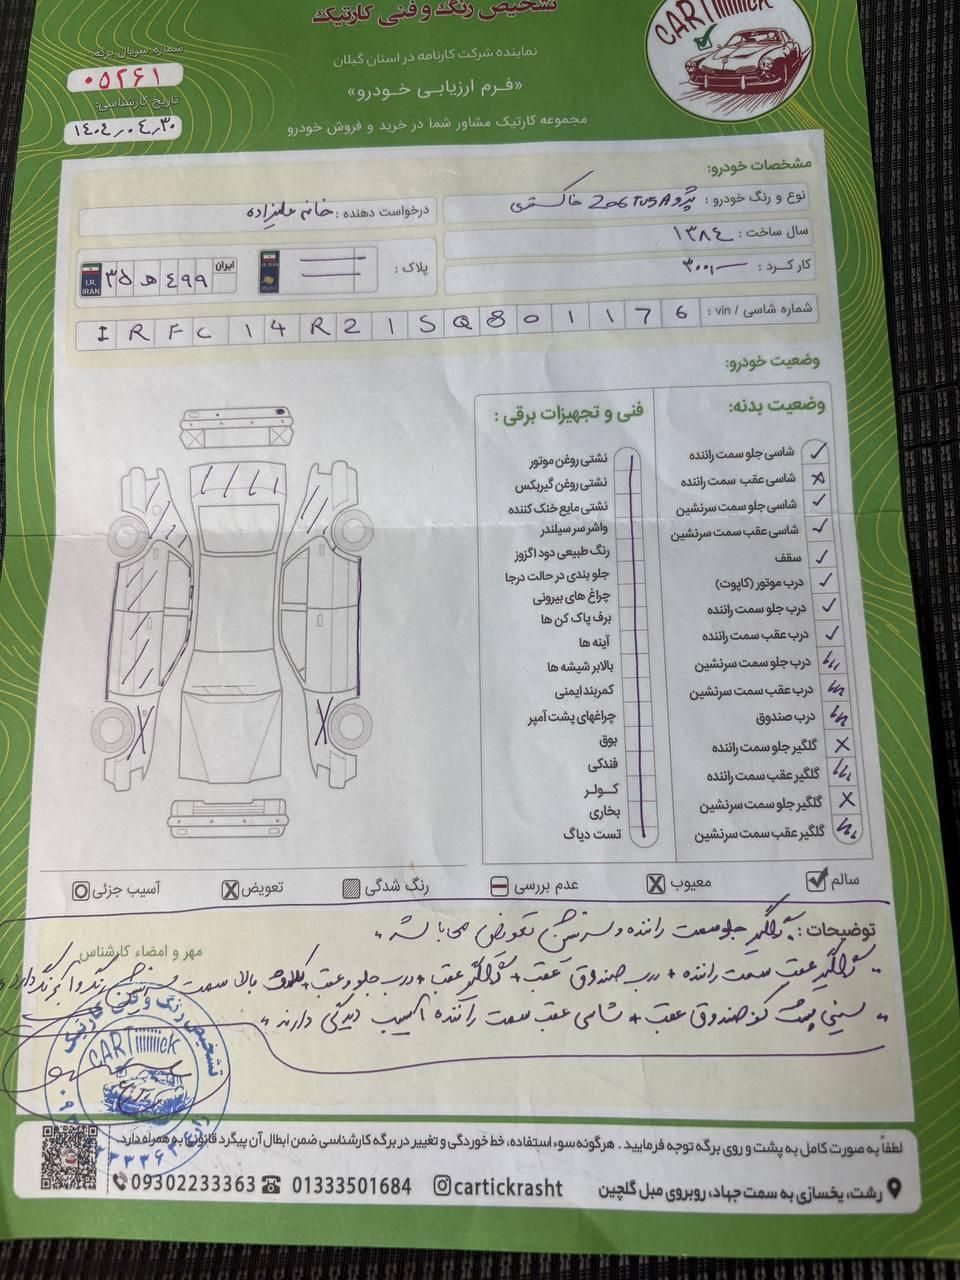 تشخیص رنگ و فنی کارتیک
CARTiiiiiick
نماینده شرکت کارنامه در استان گیلان
«فرم ارزیابی خودرو»
مجموعه کارتیک مشاور شما در خرید و فروش خودرو
شماره سریال برگه:
۰۵۲۶۱
تاریخ کارشناسی:
۱۴۰۴,۰۴,۳۰
مشخصات خودرو:
نوع و رنگ خودرو : پژو 206TU5A خاکستری
درخواست دهنده : خانم علیزاده
سال ساخت : ۱۳۸۴
کارکرد :
پلاک :
ایران
۳۵ ه ۴۹۹
I.R. IRAN
شماره شاسی / vin :
I R F C 1 4 R 2 1 S Q 8 0 1 1 7 6
وضعیت خودرو:
وضعیت بدنه:
شاسی جلو سمت راننده
شاسی عقب سمت راننده
شاسی جلو سمت سرنشین
شاسی عقب سمت سرنشین
سقف
درب موتور (کاپوت)
درب جلو سمت راننده
درب عقب سمت راننده
درب جلو سمت سرنشین
درب عقب سمت سرنشین
درب صندوق
گلگیر جلو سمت راننده
گلگیر عقب سمت راننده
گلگیر جلو سمت سرنشین
گلگیر عقب سمت سرنشین
فنی و تجهیزات برقی :
نشتی روغن موتور
نشتی روغن گیربکس
نشتی مایع خنک کننده
واشر سر سیلندر
رنگ طبیعی دود اگزوز
جلو بندی در حالت درجا
چراغ های بیرونی
برف پاک کن ها
آینه ها
بالابر شیشه ها
کمربند ایمنی
چراغهای پشت آمپر
بوق
فندکی
کولر
بخاری
تست دیاگ
سالم
معیوب
عدم بررسی
رنگ شدگی
تعویض
آسیب جزئی
توضیحات : گلگیر جلو سمت راننده و سرنشین تعویض میباشد
مهر و امضاء کارشناس
گلگیر عقب سمت راننده + درب صندوق عقب + گلگیر عقب + درب جلو و عقب + بالا سمت سرنشین رنگ و دارد
سینی پشت کف صندوق عقب + شاسی عقب سمت راننده آسیب دیدگی دارند
تشخیص رنگ و فنی کارتیک
CARTiiiiiick
لطفاً به صورت کامل به پشت و روی برگه توجه فرمایید . هرگونه سوء استفاده، خط خوردگی و تغییر در برگه کارشناسی ضمن ابطال آن پیگرد قانونی به همراه دارد.
رشت، یخسازی به سمت جهاد، روبروی مبل گلچین
cartickrasht
01333501684
09302233363